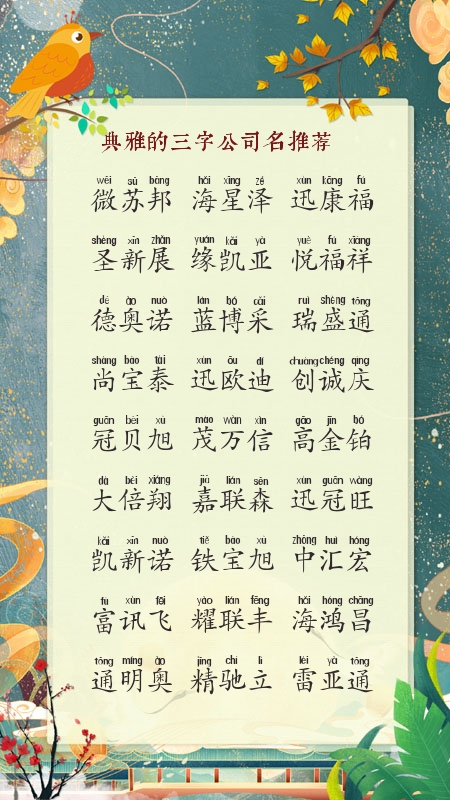 典雅的三字公司名推荐
wēi sū bāng hǎi xīng zé xùn kāng fú
微苏邦 海星泽 迅康福
shèng xīn zhǎn yuán kǎi yà yuè fú xiáng
圣新展 缘凯亚 悦福祥
dé ào nuò lán bó cǎi ruì shèng tōng
德奥诺 蓝博采 瑞盛通
shàng bǎo tài xùn ōu dí chuàng chéng qìng
尚宝泰 迅欧迪 创诚庆
guān bèi xù mào wàn xìn gāo jīn bó
冠贝旭 茂万信 高金铂
dà bèi xiáng jiā lián sēn xùn guān wàng
大倍翔 嘉联森 迅冠旺
kǎi xīn nuò tiě bǎo xù zhōng huì hóng
凯新诺 铁宝旭 中汇宏
fù xùn fēi yào lián fēng hǎi hóng chāng
富讯飞 耀联丰 海鸿昌
tōng míng ào jīng chí lì léi yà tōng
通明奥 精驰立 雷亚通